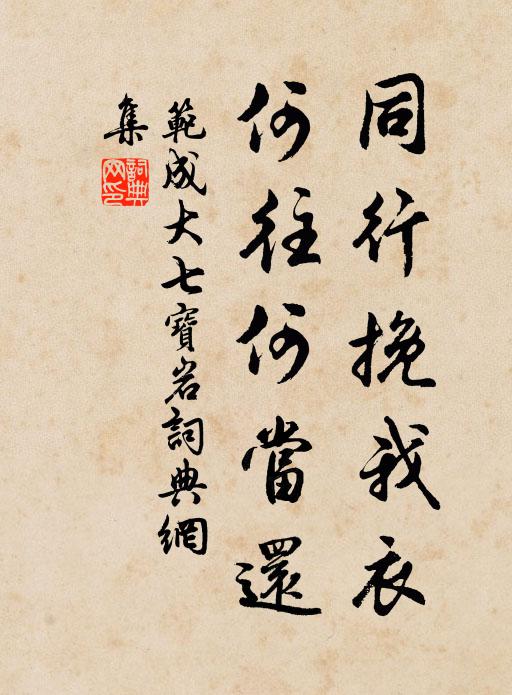 同行挽我衣
何往何當還
範成大七寶岩詞典網
集
詞典網印